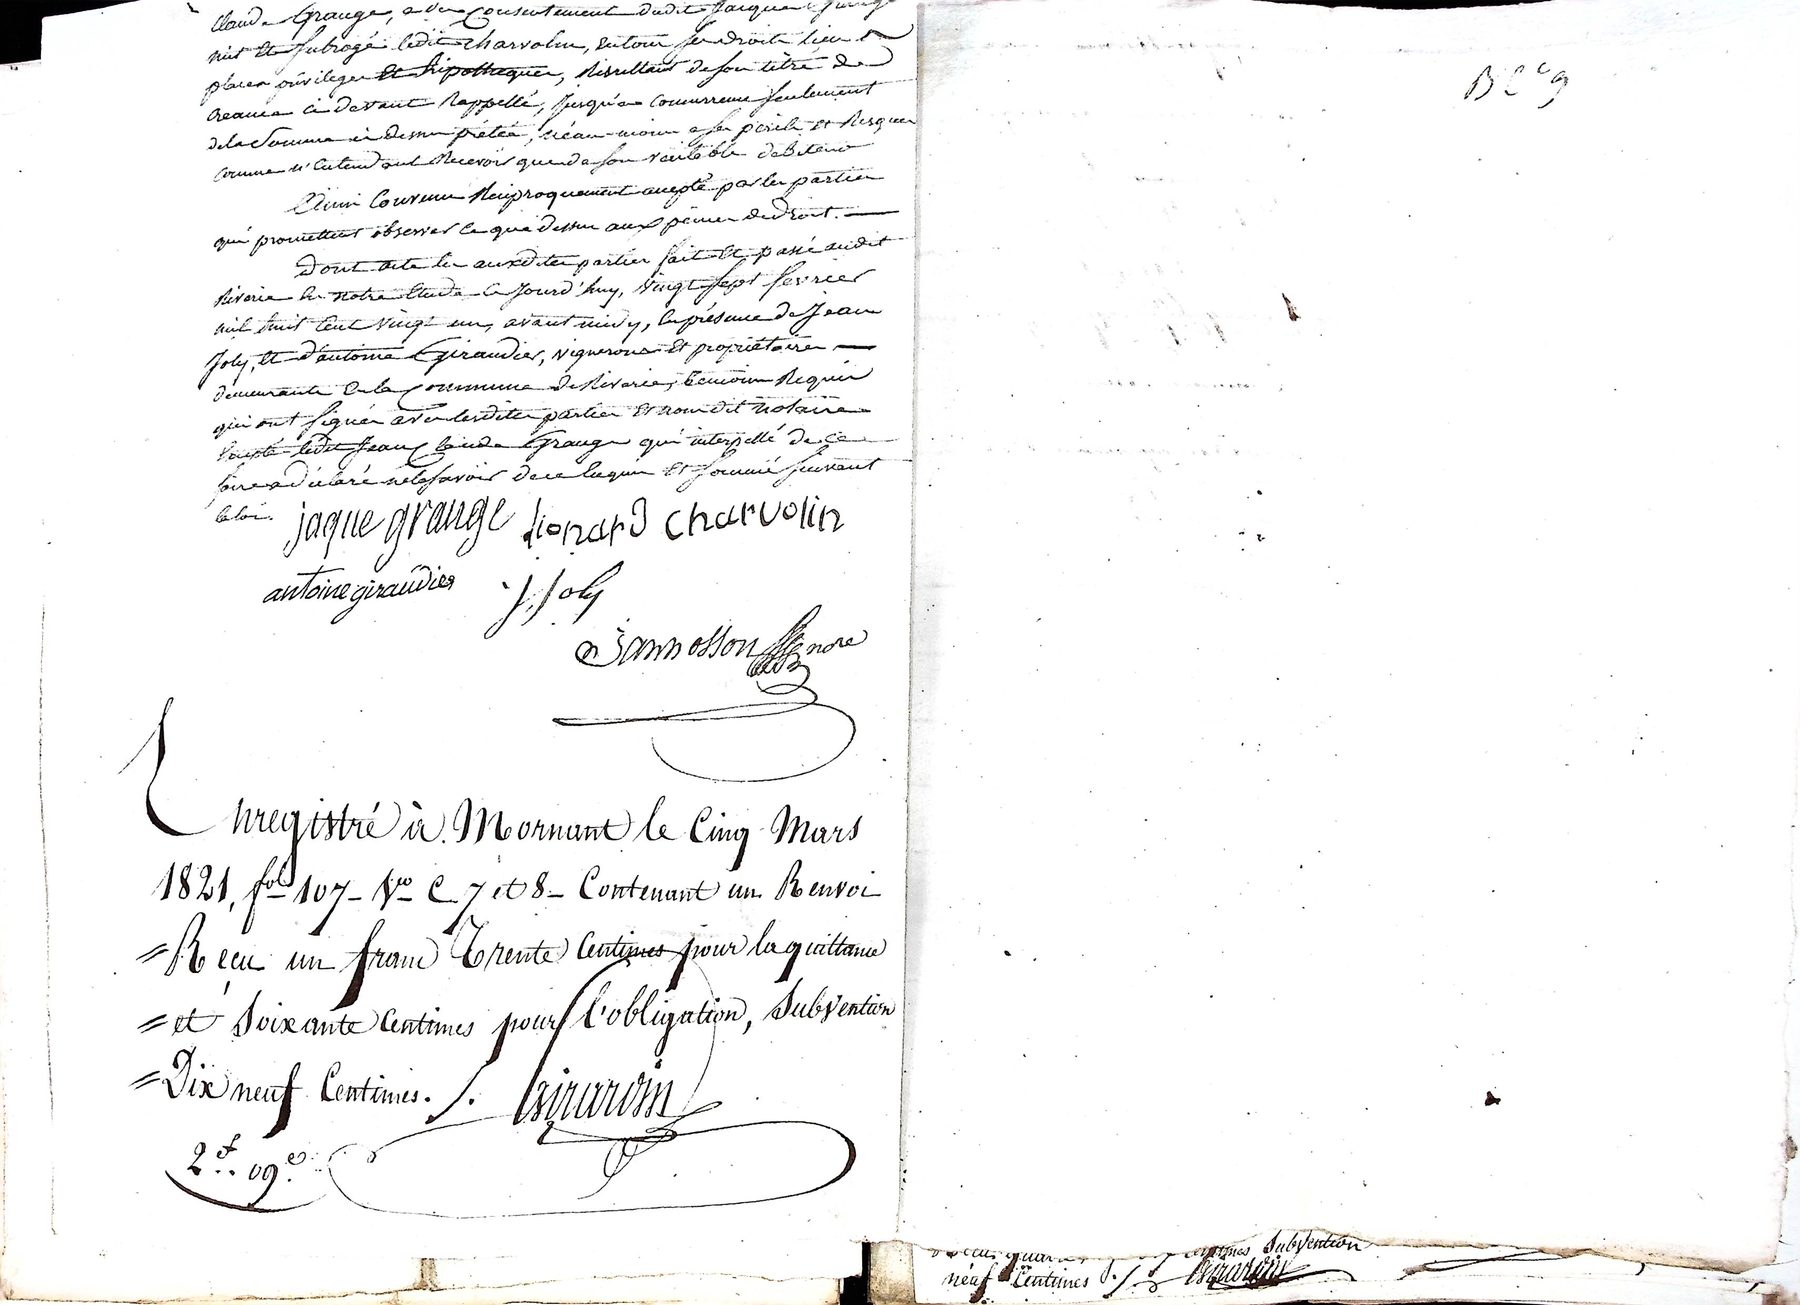 Claude Grange, a du Consentement dudit Jacques Grange
mis Et Subrogé ledit Charvolin, en tous ses droits lieu &
places privileges Et hipotheques, Résultant de son titre de
creance ci devant Rappellé, Jusqu'a concurrence seulement
de la Somme ci dessus prétée, néan-moins a ses périls Et Risques
comme n'Entendant Recevoir que de son véritable debiteur
Ainsi Convenu Réciproquement accepté par les parties
qui promettent observer ce que dessus aux peines de droit. —
Dont acte lu auxdites parties fait Et passé audit
Riverie En notre Etude Ce Jourd'huy, vingt sept fevrier
mil huit Cent vingt un, avant midy, En présence de Jean
Joly, Et d'antoine Giraudier, vignerons Et propriétaires —
demeurants En la Commune de Riverie, témoins Requis
qui ont signés avec lesdites parties Et nous dit notaire
Excepté ledit Jean Claude Grange qui interpellé de ce
faire a déclaré ne le savoir de ce Enquis Et sommé suivant
la loi.
jaque grange lionard charvolin
antoine giraudier J. Joly
Jannosson nore
Enregistré à Mornant le Cinq Mars
1821, fol 107 - Vo C 7 et 8 - Contenant un Renvoi
= Reçu un franc Trente Centimes pour la quittance
= et Soixante Centimes pour l'obligation, Subvention
= Dix neuf Centimes. /. Girardin
2f.. 09c.
centimes Subvention
neuf Centimes /. Girardin